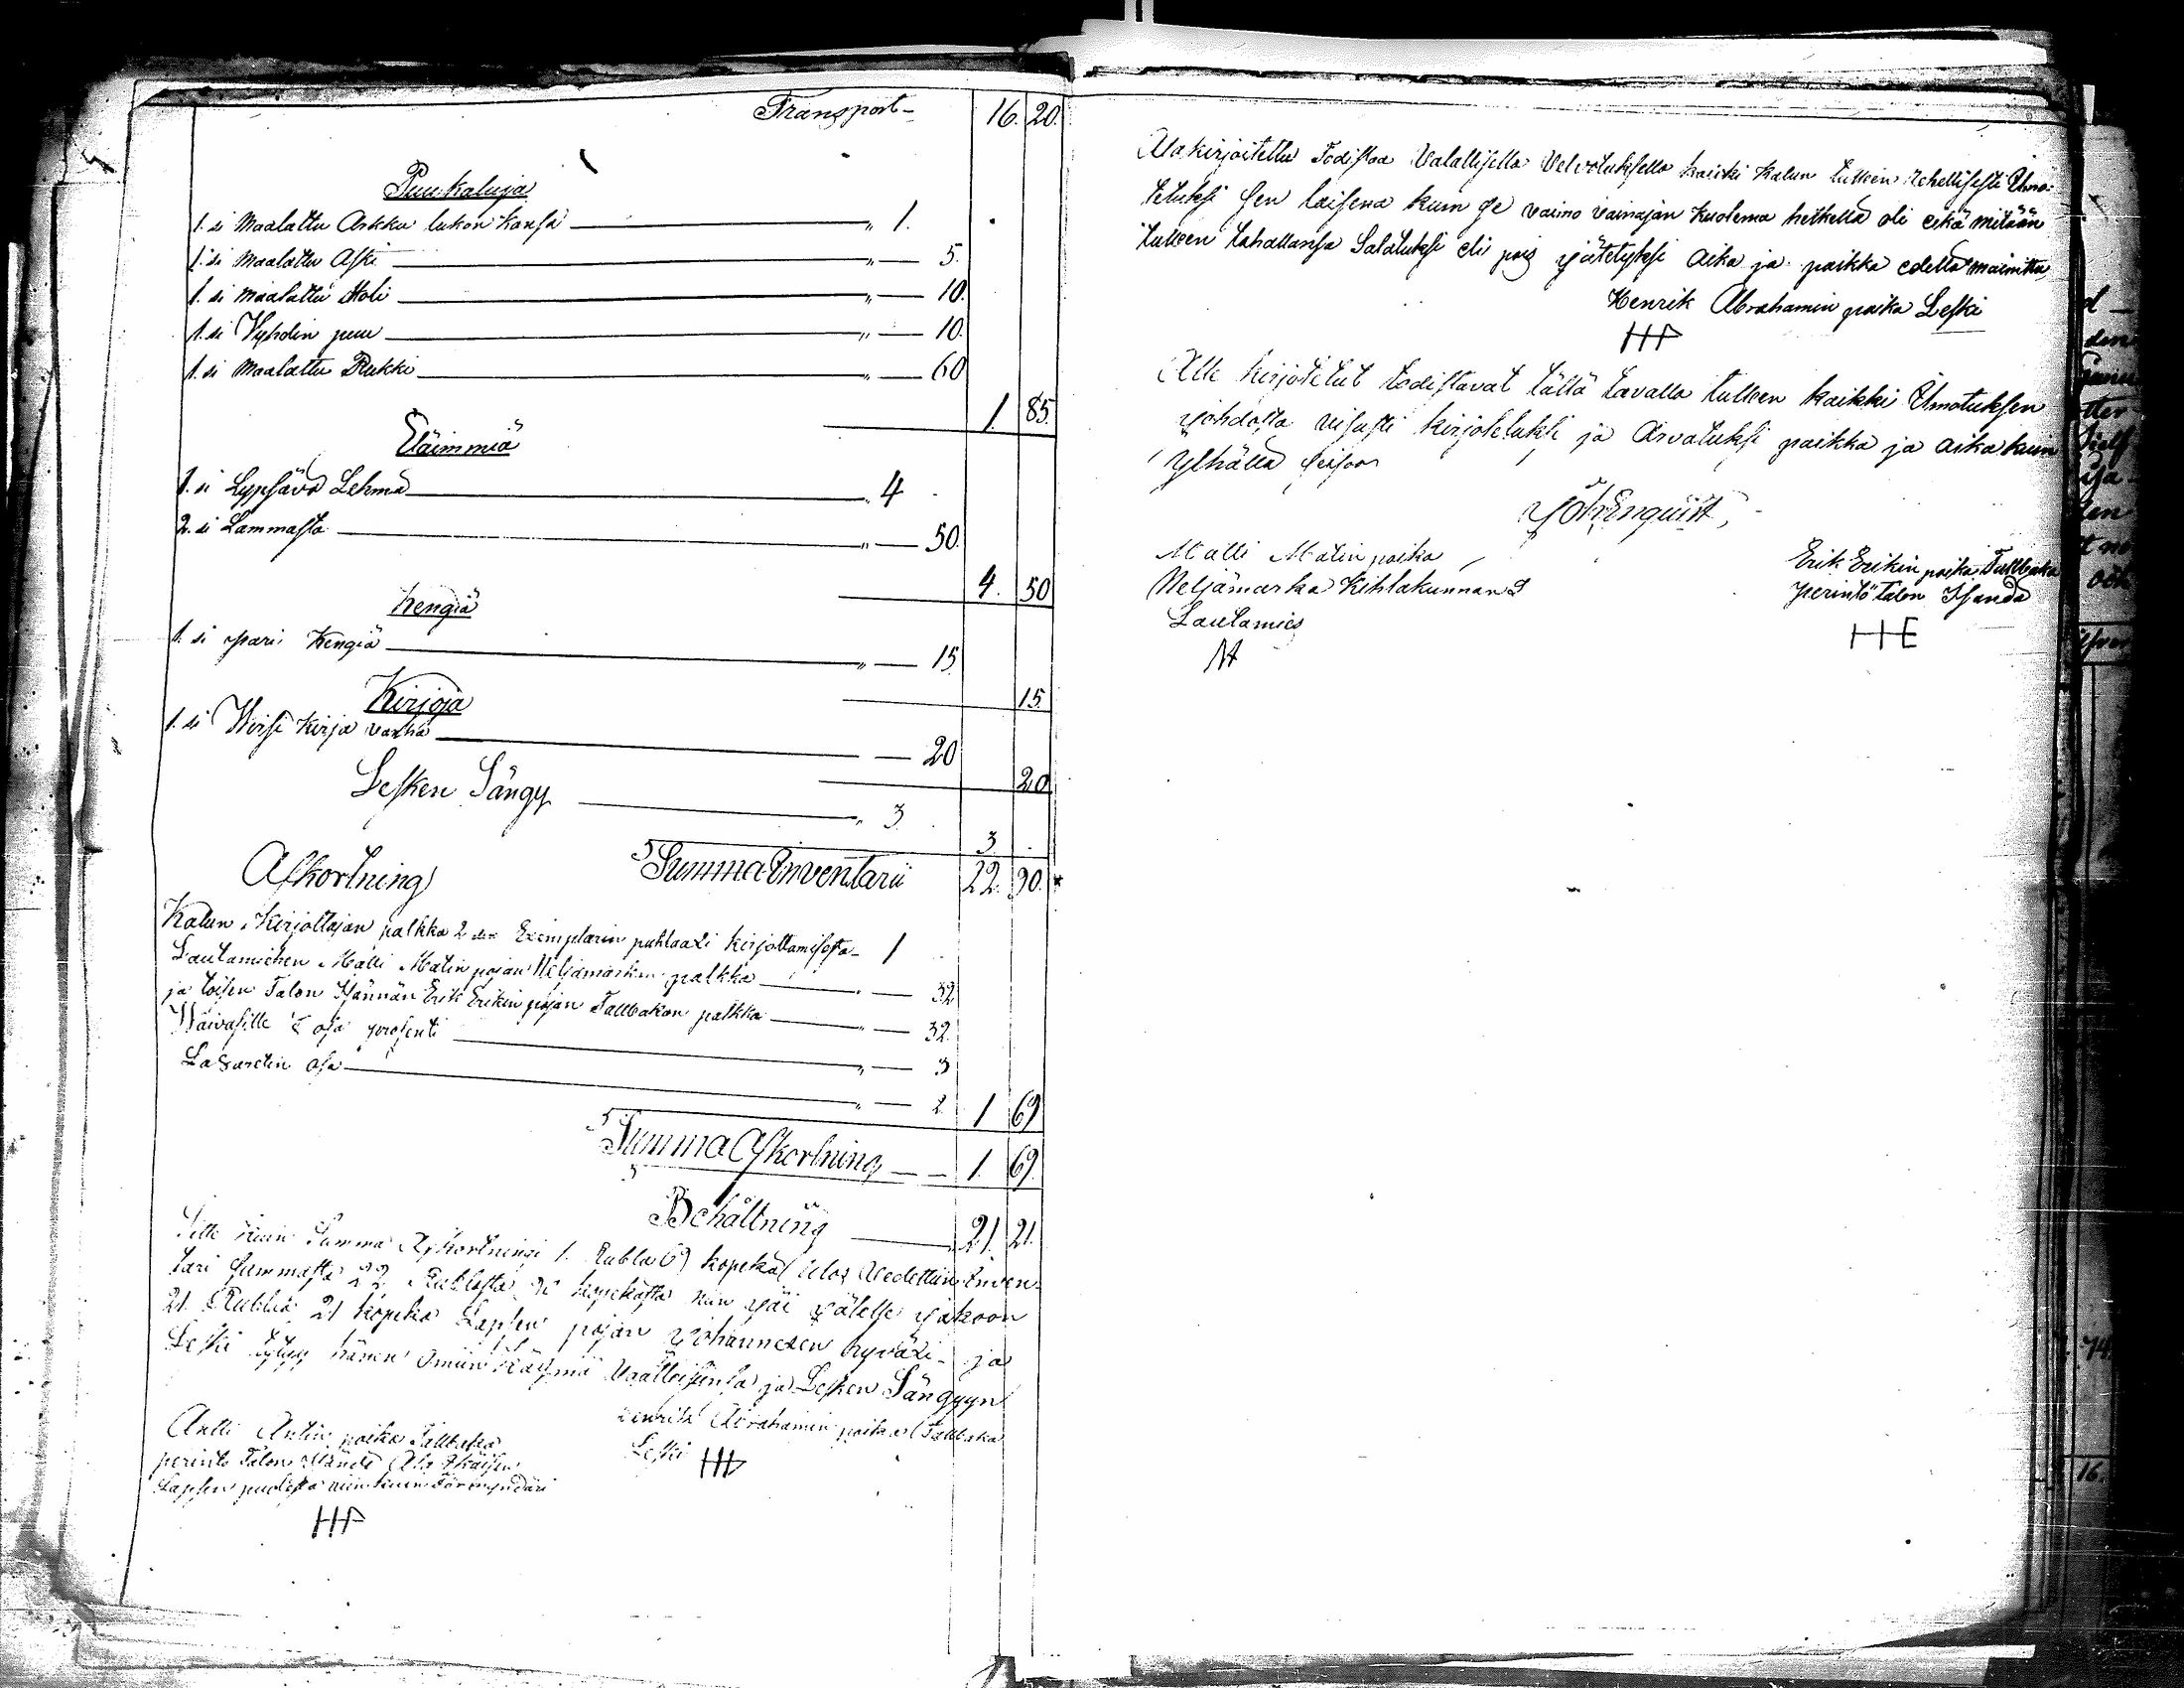 Transport - 16. 20.
Puukaluja
1. si Maalattu Arkku lukon kansa " 1. .
1. si Maalattu Aski " 5.
1. si Maalattu Stoli " 10.
1. si Vyhdin puu " 10.
1. si Maalattu Rukki " 60
1. 85.
Eläimmiä
1. si Lypsävä Lehmä " 4 .
2. si Lammasta " 50.
4. 50
Kengiä
1. si pari Kengiä " 15
15.
Kirjoja
1. si Wirsi Kirja vanha 20
20
Lesken Sängy " 3. .
3. .
Afkortning Summa Inventarii 22. 90.
Kalun Kirjottajan palkka 2 Exemplarin puhtaaxi kirjottamisesta 1 .
Lautamiehen Matti Matin pojan Neljämarkan palkka " 32
ja toisen Talon Isännän Erik Erikin pojan Tallbakan palkka " 32.
Waivasille osa prosenti " 3
Lasaretin osa " 2. 1 69
Summa Afkortning 1. 69.
Behåltning 21. 21.
Sitte kuin Summa Afkortningi 1. Rubla 69 kopeka Ulos Vedettiin Inven-
tari summasta 22 Rublasta 90 kopekasta niin jäi jälelle jakoon
21 Rubla 21 kopeka Lapsen pojan Johanneksen hyväxi ja
Leski tytyy hänen omiin Käymä Vaatteisiinsa ja Lesken Sängyyn
Antti Antin poika Tallbaka
perintö Talon Isändä Ala Ikäisen
Lapsen puolesta niin kuin Förmyndäri
HP
Henrik Abrahamin poika Tallbaka
Leski HP
Alakirjoitettu Todistaa Valallisella Velvotuksella kaicki Kalun tulleen Rehellisesti Ilmo-
tetuksi sen laisena kuin se vaimo vainajan kuolema hetkellä oli eikä mitään
tulleen tahallansa Salatuksi eli pois jätetyksi Aika ja paikka edellä mainittu,
Henrik Abrahamin poika Leski
HP
Alle kirjotetut todistavat tällä tavalla tulleen kaikki Ilmotuksen
johdosta visusti kirjotetuksi ja Arvatuksi paikka ja aika kuin
Ylhällä seisoo
Joh Enquist,
Matti Matin poika
Neljämarka Kihlakunnan
Lautamies
Erik Erikin poika Tallbaka
perintö talon Isända
HE